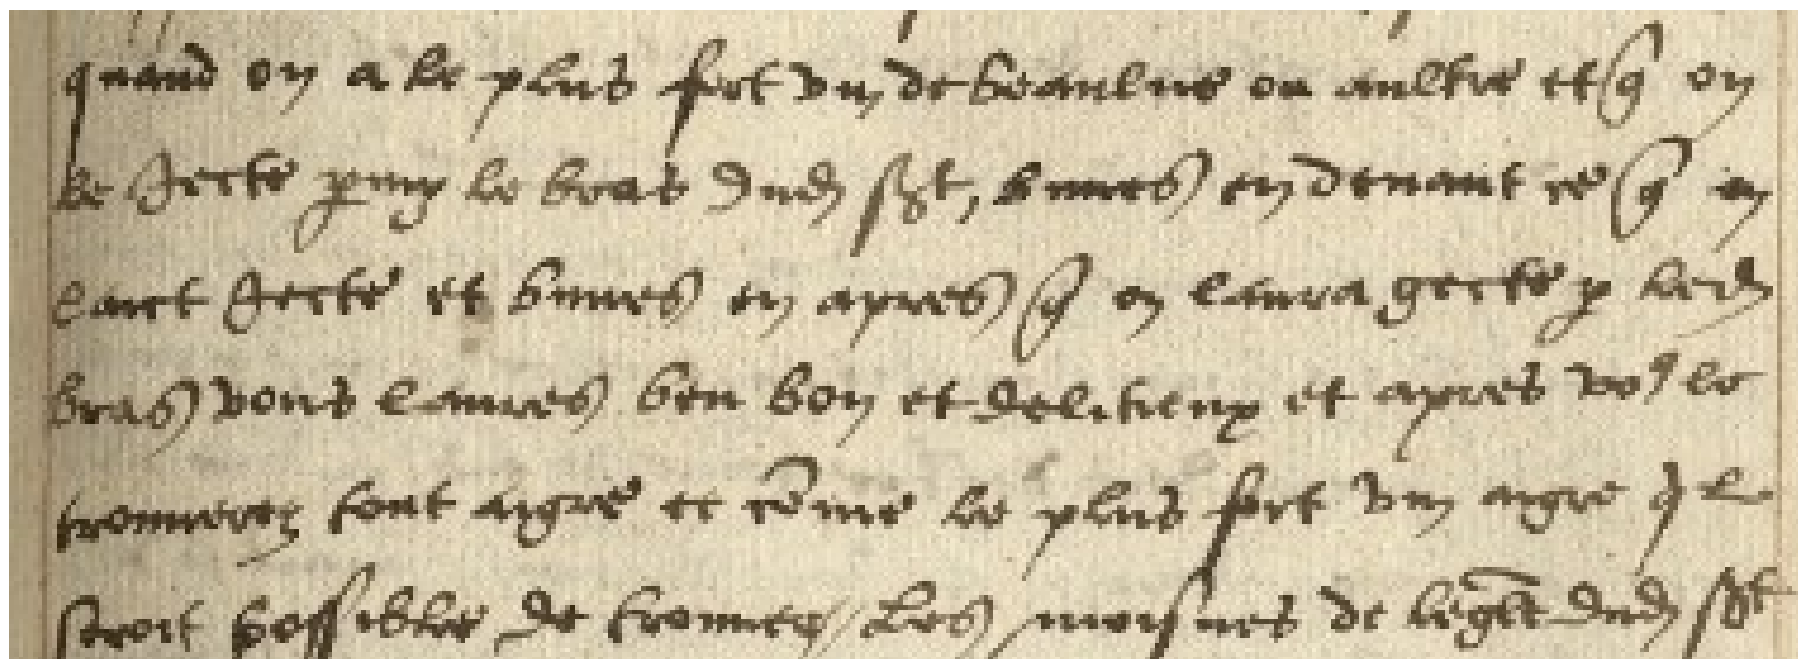 quand on a le plus fort vin de beaulne ou aultre et q̃ on
le Jecte p̱my le bras dud̶ sgt, buves en devant ce q̃ on
layt Jecte et buves en apres q̃ on laura gecte p̱ led̶
bras vous laures ben bon et delitieux et apres voꝰ le
trouverez tout aigre et cõme le plus fort vin aigre ql
seroit possible de trouver // Les moisnes de leg̃lte dud̶ sgt